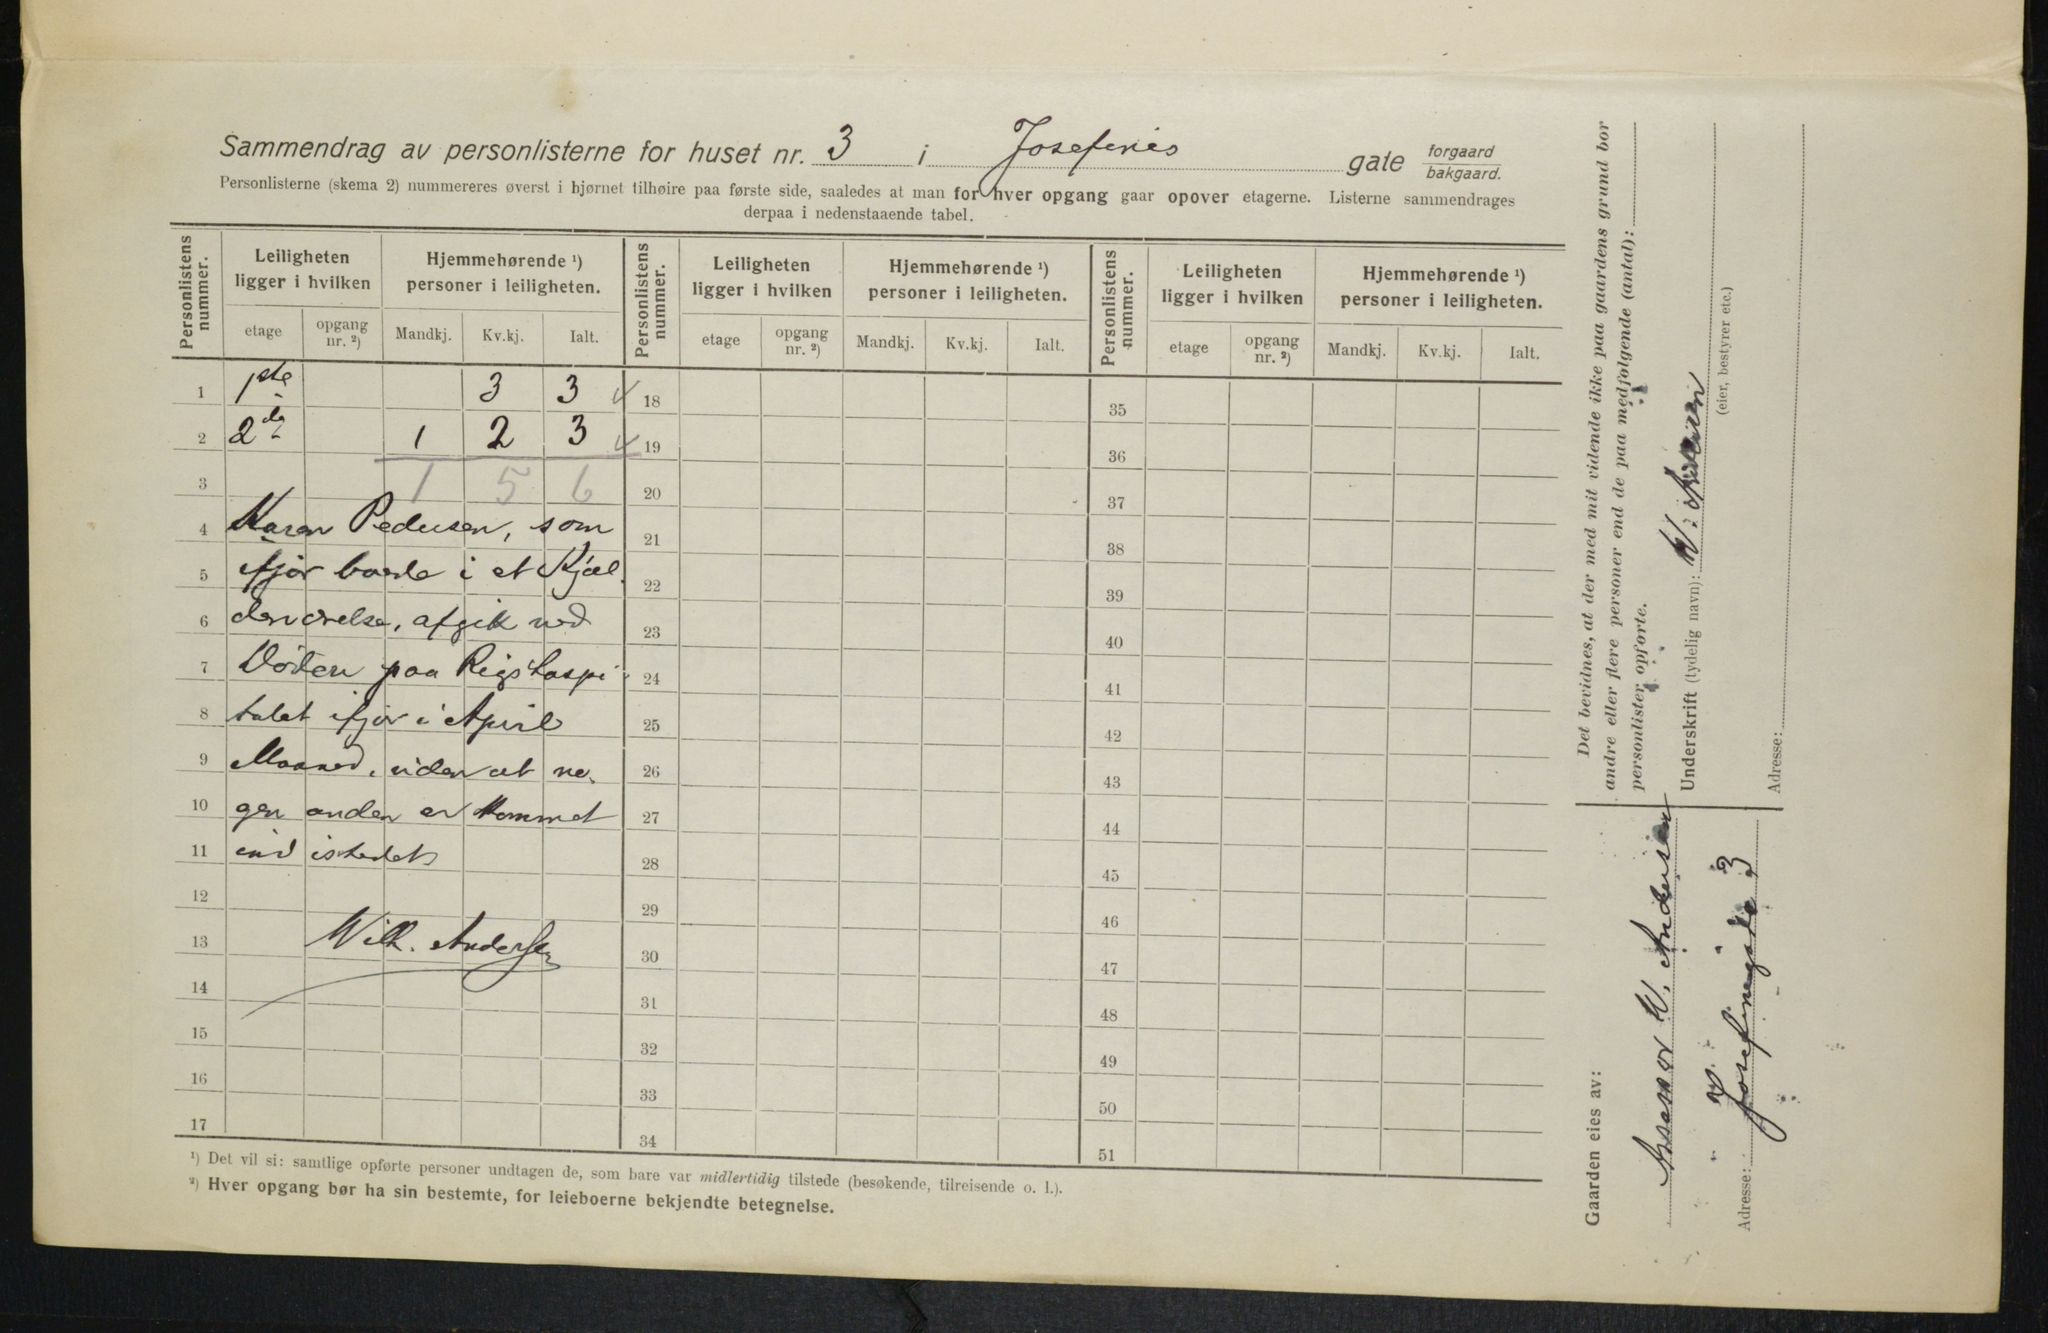 Sammendrag av personlisterne for huset nr. 3 i Josefines gate forgaard bakgaard.
Personlisterne (skema 2) nummereres øverst i hjørnet tilhøire paa første side, saaledes at man for hver opgang gaar opover etagerne. Listerne sammendrages
derpaa i nedenstaaende tabel.
Personlistens nummer. Leiligheten ligger i hvilken Hjemmehørende ¹) personer i leiligheten. Personlistens nummer. Leiligheten ligger i hvilken Hjemmehørende ¹) personer i leiligheten. Personlistens nummer. Leiligheten ligger i hvilken Hjemmehørende ¹) personer i leiligheten.
etage opgang nr. ²) Mandkj. Kv.kj. Ialt. etage opgang nr. ²) Mandkj. Kv.kj. Ialt. etage opgang nr. ²) Mandkj. Kv.kj. Ialt.
1 1ste 3 3 18 35
2 2de 1 2 3 19 36
3 1 5 6 20 37
4 Karen Pedersen, som 21 38
5 ifjor boede i et Kjæl- 22 39
6 derværelse, afgik ved 23 40
7 Døden paa Rigshospi- 24 41
8 talet ifjor i April 25 42
9 Maaned, uden at no- 26 43
10 gen anden er kommet 27 44
11 ind istedet 28 45
12 29 46
13 Wilh. Andersen 30 47
14 31 48
15 32 49
16 33 50
17 34 51
¹) Det vil si: samtlige opførte personer undtagen de, som bare var midlertidig tilstede (besøkende, tilreisende o. l.).
²) Hver opgang bør ha sin bestemte, for leieboerne bekjendte betegnelse.
Det bevidnes, at der med mit vidende ikke paa gaardens grund bor
andre eller flere personer end de paa medfølgende (antal):
personlister opførte.
Underskrift (tydelig navn): W. Andersen
(eier, bestyrer etc.)
Adresse:
Gaarden eies av:
Assessor W. Andersen
Adresse: Josefinegade 3